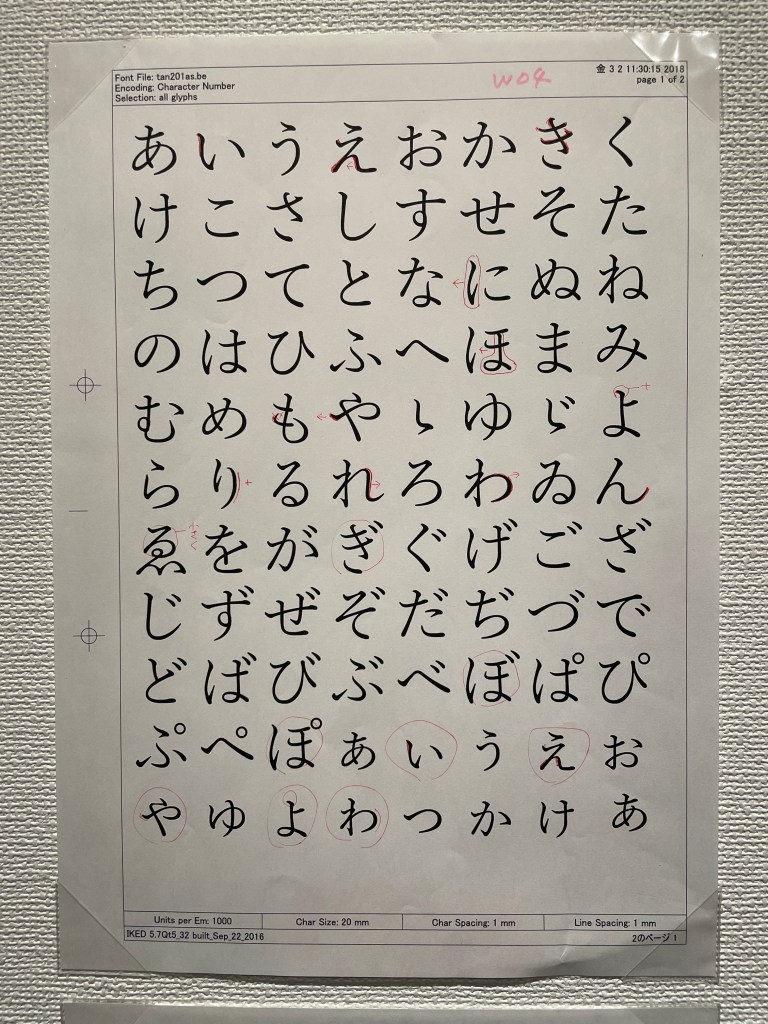 Font File: tan201as.be
Encoding: Character Number
Selection: all glyphs
W04
金 3 2 11:30:15 2018
page 1 of 2
あいうえおかきく
けこさしすせそた
ちつてとなにぬね
のはひふへほまみ
むめもやゝゆゞよ
らりるれろわゐん
ゑをがぎぐげござ
小さく
じずぜぞだぢづで
どばびぶべぼぱぴ
ぷぺぽぁぃぅぇぉ
ゃゅょゎっゕゖあ
Units per Em: 1000
Char Size: 20 mm
Char Spacing: 1 mm
Line Spacing: 1 mm
IKED 5.7Qt5_32 built_Sep_22_2016
2のページ 1